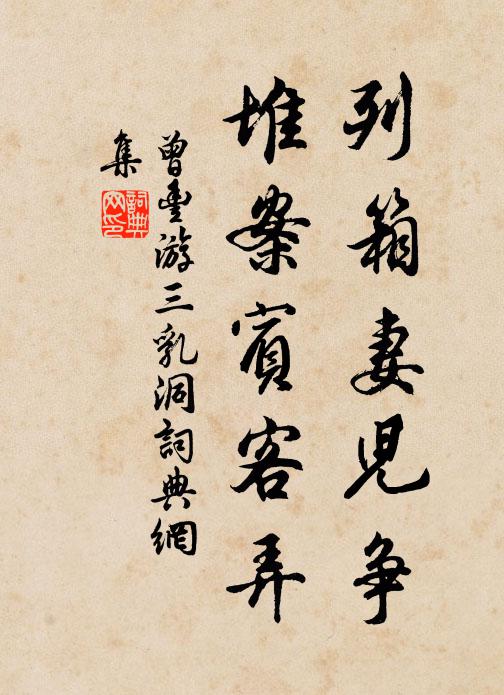 列箱妻児争
堆案賓客弄
曾豊游三乳洞詞典網
集
詞典
网印